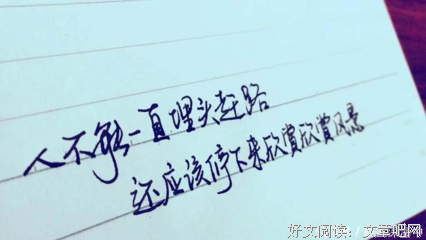 人不能一直埋头赶路
还应该停下来欣赏欣赏风景
好文阅读：文章吧网